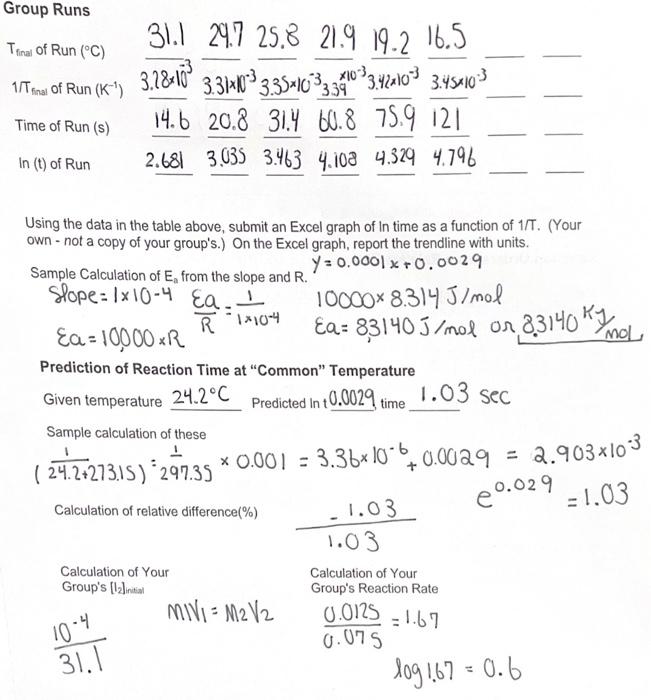 Group Runs
T final of Run (°C) 31.1 29.7 25.8 21.9 19.2 16.5
1/T final of Run (K⁻¹) 3.28×10⁻³ 3.31×10⁻³ 3.35×10⁻³ 3.39×10⁻³ 3.42×10⁻³ 3.45×10⁻³
Time of Run (s) 14.6 20.8 31.4 60.8 75.9 121
ln (t) of Run 2.681 3.035 3.463 4.108 4.329 4.796
Using the data in the table above, submit an Excel graph of ln time as a function of 1/T. (Your
own - not a copy of your group's.) On the Excel graph, report the trendline with units.
y = 0.0001x + 0.0029
Sample Calculation of Eₐ from the slope and R.
Slope = 1×10-4 Ea/R = 1/1×10⁻⁴ 10000× 8.314 J/mol
Ea = 10,000 ×R Ea = 83140 J/mol or 83140 KJ/mol
Prediction of Reaction Time at “Common” Temperature
Given temperature 24.2°C Predicted ln t 0.0029, time 1.03 sec
Sample calculation of these
1/(24.2+273.15) = 1/297.35 × 0.001 = 3.36×10⁻⁶ + 0.0029 = 2.903×10⁻³
e^0.029 = 1.03
Calculation of relative difference(%) - 1.03
1.03
Calculation of Your Group's [I₂]initial
M1V1 = M2V2
10⁻⁴/31.1
Calculation of Your Group's Reaction Rate
0.0125/0.075 = 1.67
log 1.67 = 0.6